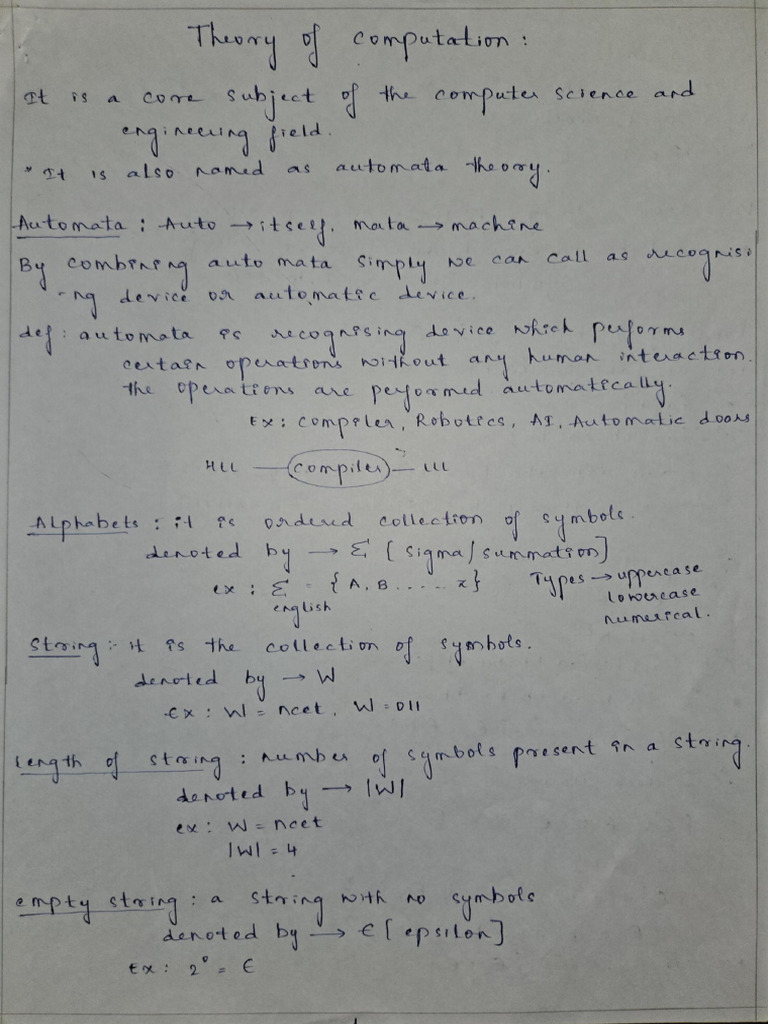 Theory of computation:
It is a core subject of the computer science and
engineering field.
* It is also named as automata theory.
Automata: Auto → itself, mata → machine
By combining auto mata simply we can call as recognisi
-ng device or automatic device.
def: automata is recognising device which performs
certain operations without any human interaction.
the operations are performed automatically.
Ex: compiler, Robotics, AI, Automatic doors
HLL — compiler — LLL
Alphabets: it is ordered collection of symbols.
denoted by → Σ [sigma/summation]
ex: Σ english = {A, B.....z} Types → uppercase
lowercase
numerical.
String:- it is the collection of symbols.
denoted by → W
Ex: W = ncet, W = 011
length of string: number of symbols present in a string.
denoted by → |W|
ex: W = ncet
|W| = 4
empty string: a string with no symbols
denoted by → ∈ [epsilon]
Ex: 2⁰ = ∈